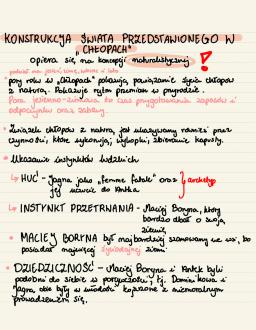 KONSTRUKCJA ŚWIATA PRZEDSTAWIONEGO W
„CHŁOPACH"
Opiera się na koncepcji naturalistycznej !
podział na jesień, zimę, wiosnę i lato
pory roku w „Chłopach" pokazują, powiązanie życia chłopów
z naturą. Pokazuje rytm przemian w przyrodzie.
Pora jesienno-zimowa to czas przygotowania zapasów i
odpoczynku oraz zabawy.
• Związek chłopów z naturą jest ukazywany również przez
czynności, które wykonują; wykopki, zbieranie kapusty.
• Ukazanie instynktów ludzkich
↳ HUĆ - Jagna jako „femme fatale" oraz archetyp
jej uczucie do Antka
↳ INSTYNKT PRZETRWANIA - Maciej Boryna, który
bardzo dbał o swoją
ziemię,
• MACIEJ BORYNA był najbardziej szanowany we wsi, bo
posiadał najwięcej ziemi.
• DZIEDZICZNOŚĆ - Maciej Boryna i Antek byli
podobni do siebie w porywczości, tj. Dominikowa i
Jagna, obie były w młodości kojarzone z niemoralnym
prowadzeniem się.